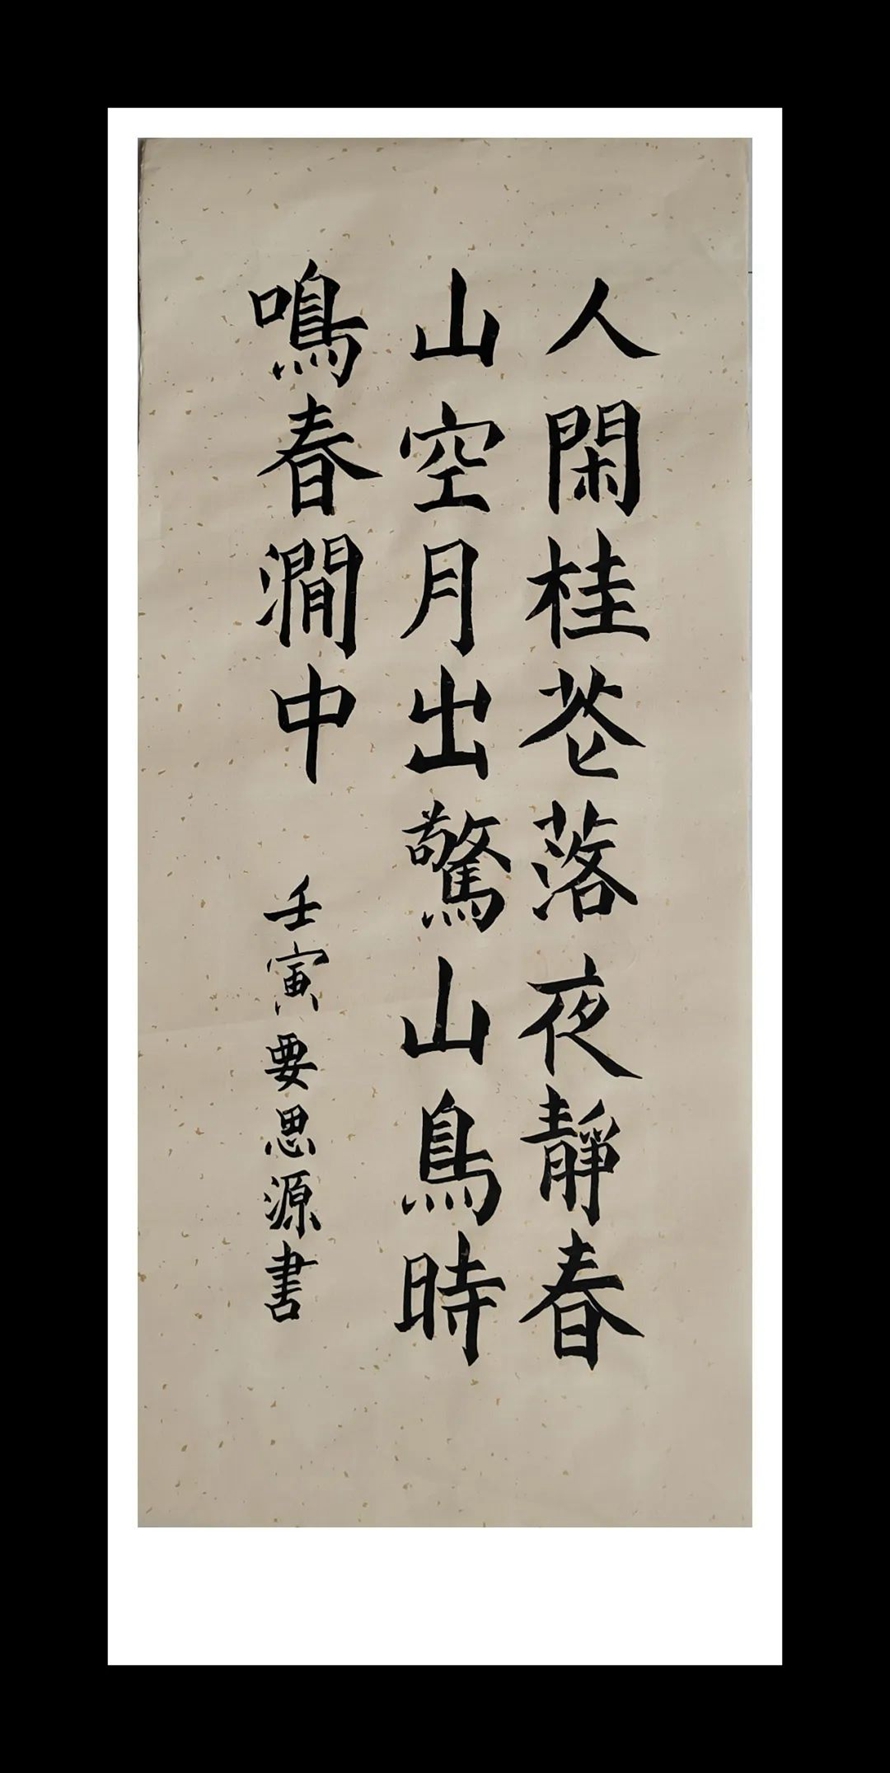 人閑桂花落夜靜春
山空月出驚山鳥時
鳴春澗中
壬寅要思源書